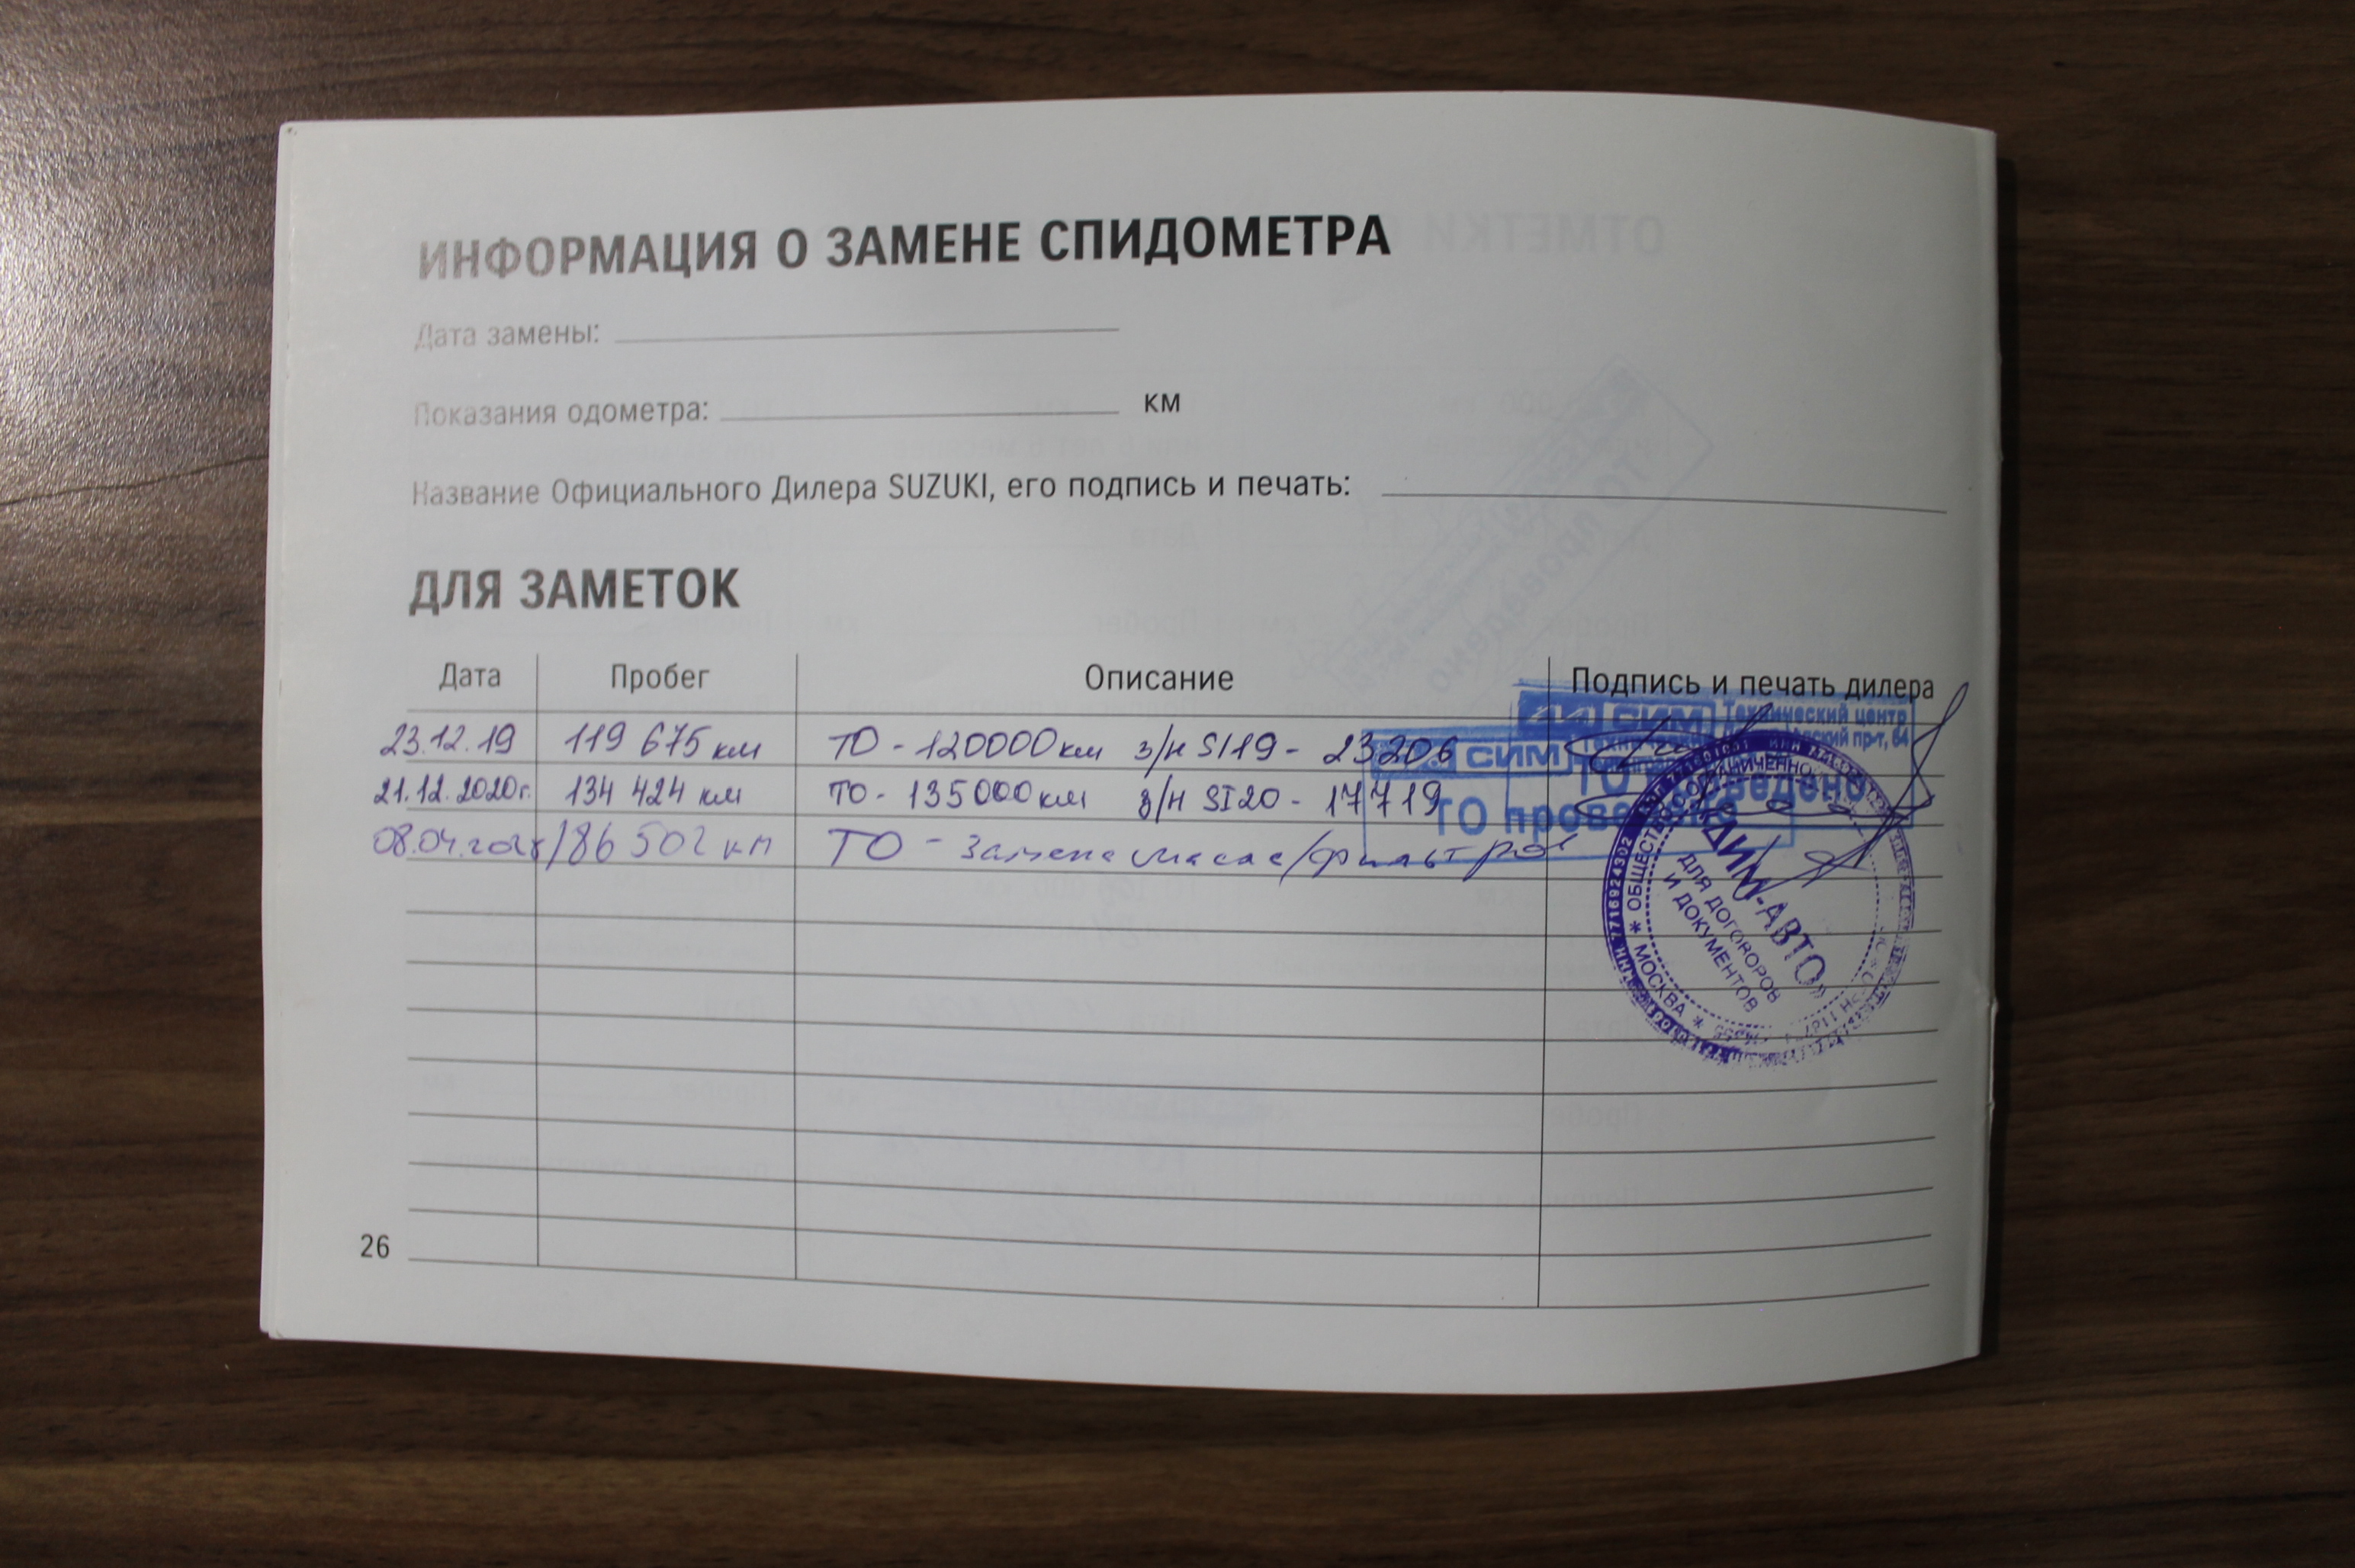 ИНФОРМАЦИЯ О ЗАМЕНЕ СПИДОМЕТРА
Дата замены:
Показания одометра: км
Название Официального Дилера SUZUKI, его подпись и печать:
ДЛЯ ЗАМЕТОК
Дата Пробег Описание Подпись и печать дилера
23.12.19 119 675 км ТО - 120000 км з/н SI19 - 23206
21.12.2020г. 134 424 км ТО - 135000 км з/н SI20 - 17719
186 502 км ТО - замена масла/фильтров
СИМ Технический центр
пр-т, 64
СИМ
ТО проведено
ОБЩЕСТВО
МОСКВА
ДИМ-АВТО»
ДЛЯ ДОГОВОРОВ
И ДОКУМЕНТОВ
26